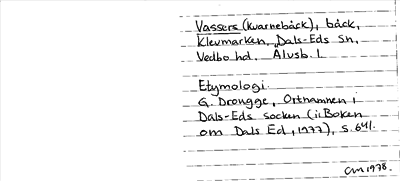 Vassers (Kvarnebäck), bäck,
Klevmarken, Dals-Eds sn,
Vedbo hd. Älvsb. l.
Etymologi:
G. Drougge, Ortnamnen i
Dals-Eds socken (i: Boken
om Dals Ed, 1977), s. 641.
CM 1978.